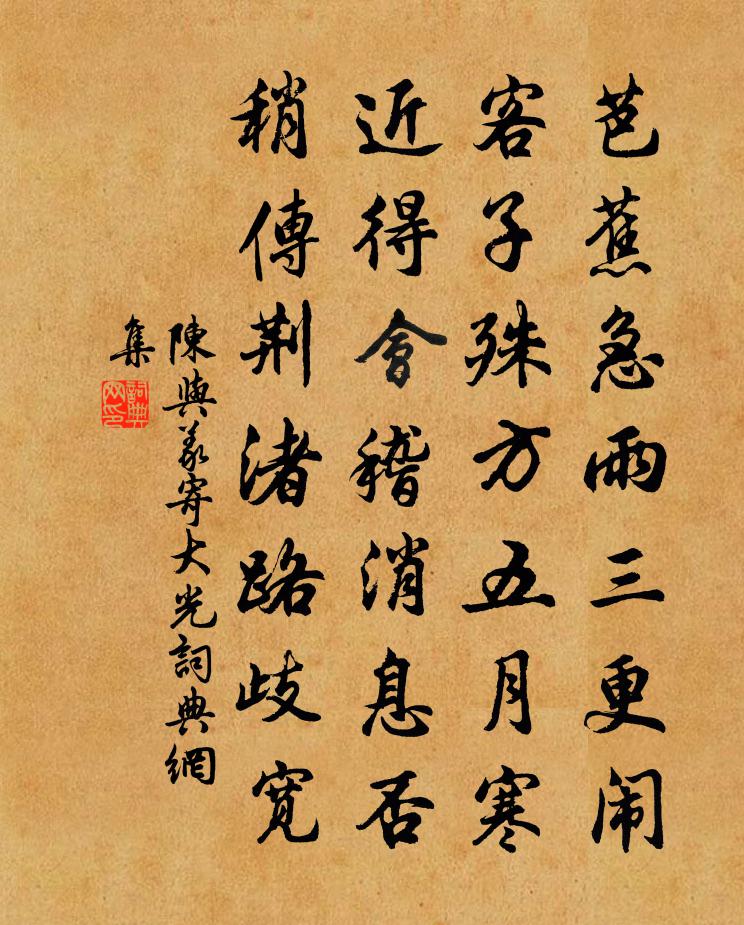 芭蕉急雨三更闹
客子殊方五月寒
近得會稽消息否
稍傳荆渚路歧寬
陳與義寄大光詞典網
集
詞典網印